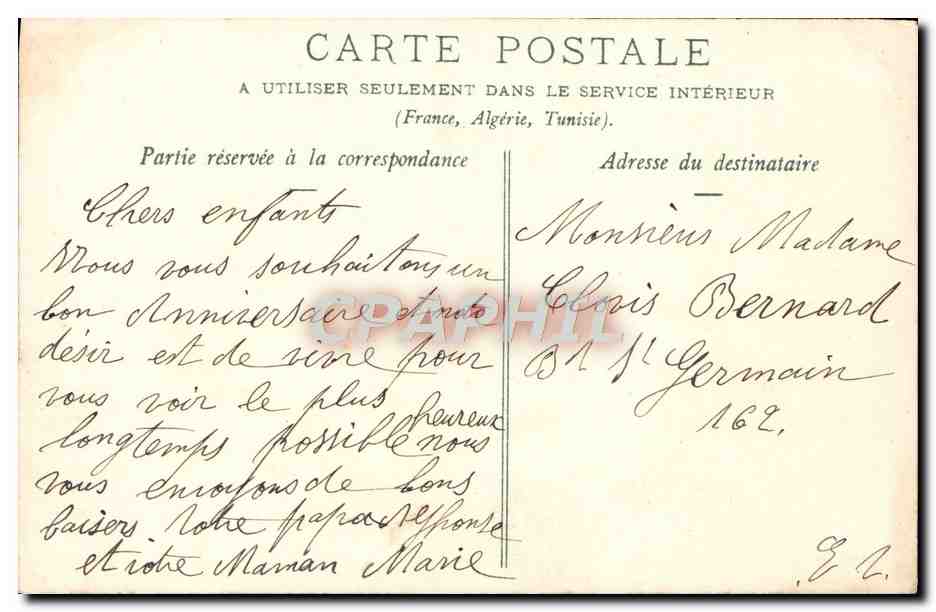 CARTE POSTALE
A UTILISER SEULEMENT DANS LE SERVICE INTÉRIEUR
(France, Algérie, Tunisie).
Partie réservée à la correspondance
Chers enfants
Nous vous souhaitons un
bon Anniversaire et notre
désir est de vivre pour
vous voir le plus
heureux
longtemps possible nous
vous envoyons de bons
baisers votre papa Alphonse
et votre Maman Marie
Adresse du destinataire
Monsieur Madame
Clovis Bernard
Bd St Germain
162.
CPAPHIL